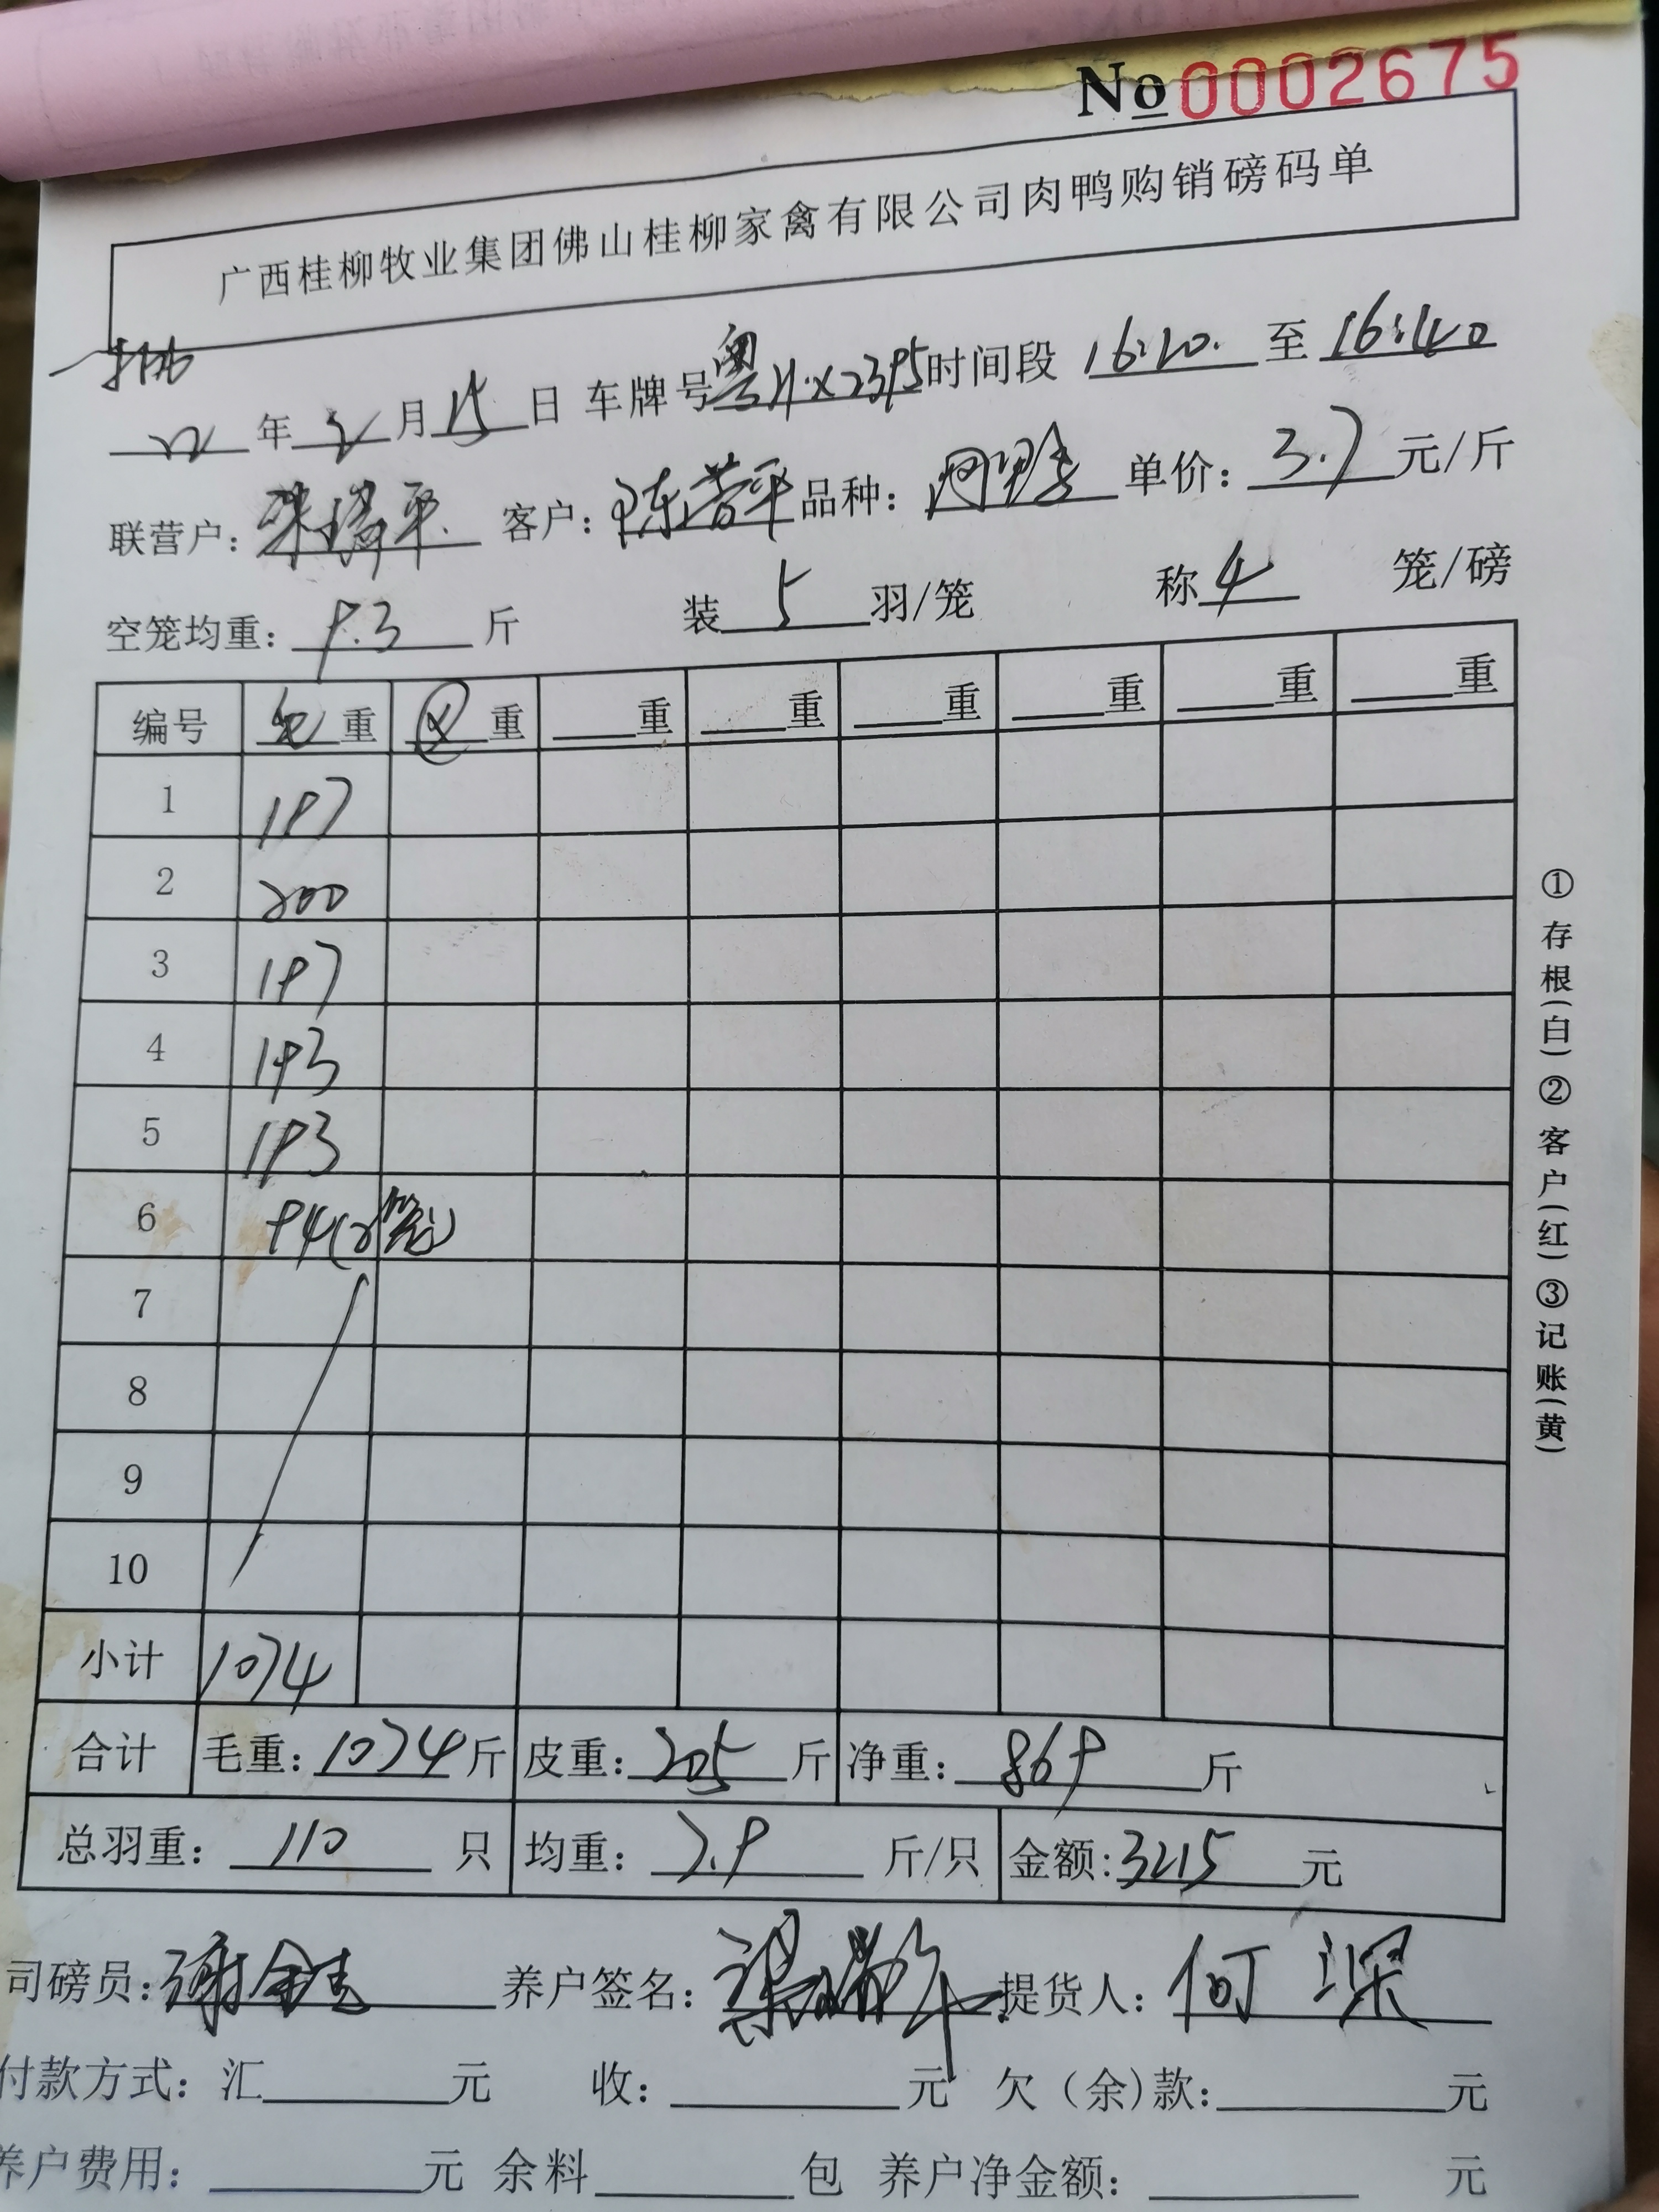 No 0002675
广西桂柳牧业集团佛山桂柳家禽有限公司肉鸭购销磅码单
22年2月15日 车牌号粤H·X2395时间段 16:20. 至 16:40
联营户： 客户：陈 平 品种： 单价：3.7元/斤
空笼均重：9.3斤 装5羽/笼 称4 笼/磅
编号 毛重 重 重 重 重 重 重 重
1 197
2 200
3 197
4 193
5 193
6 94(2笼)
7
8
9
10
小计 1074
合计 毛重：1074斤 皮重：205斤 净重：869斤
总羽重：110只 均重：7.9斤/只 金额：3215元
司磅员：谢 养户签名：梁 提货人：何深
付款方式：汇 元 收： 元 欠（余）款： 元
养户费用： 元 余料 包 养户净金额： 元
①存根（白）②客户（红）③记账（黄）